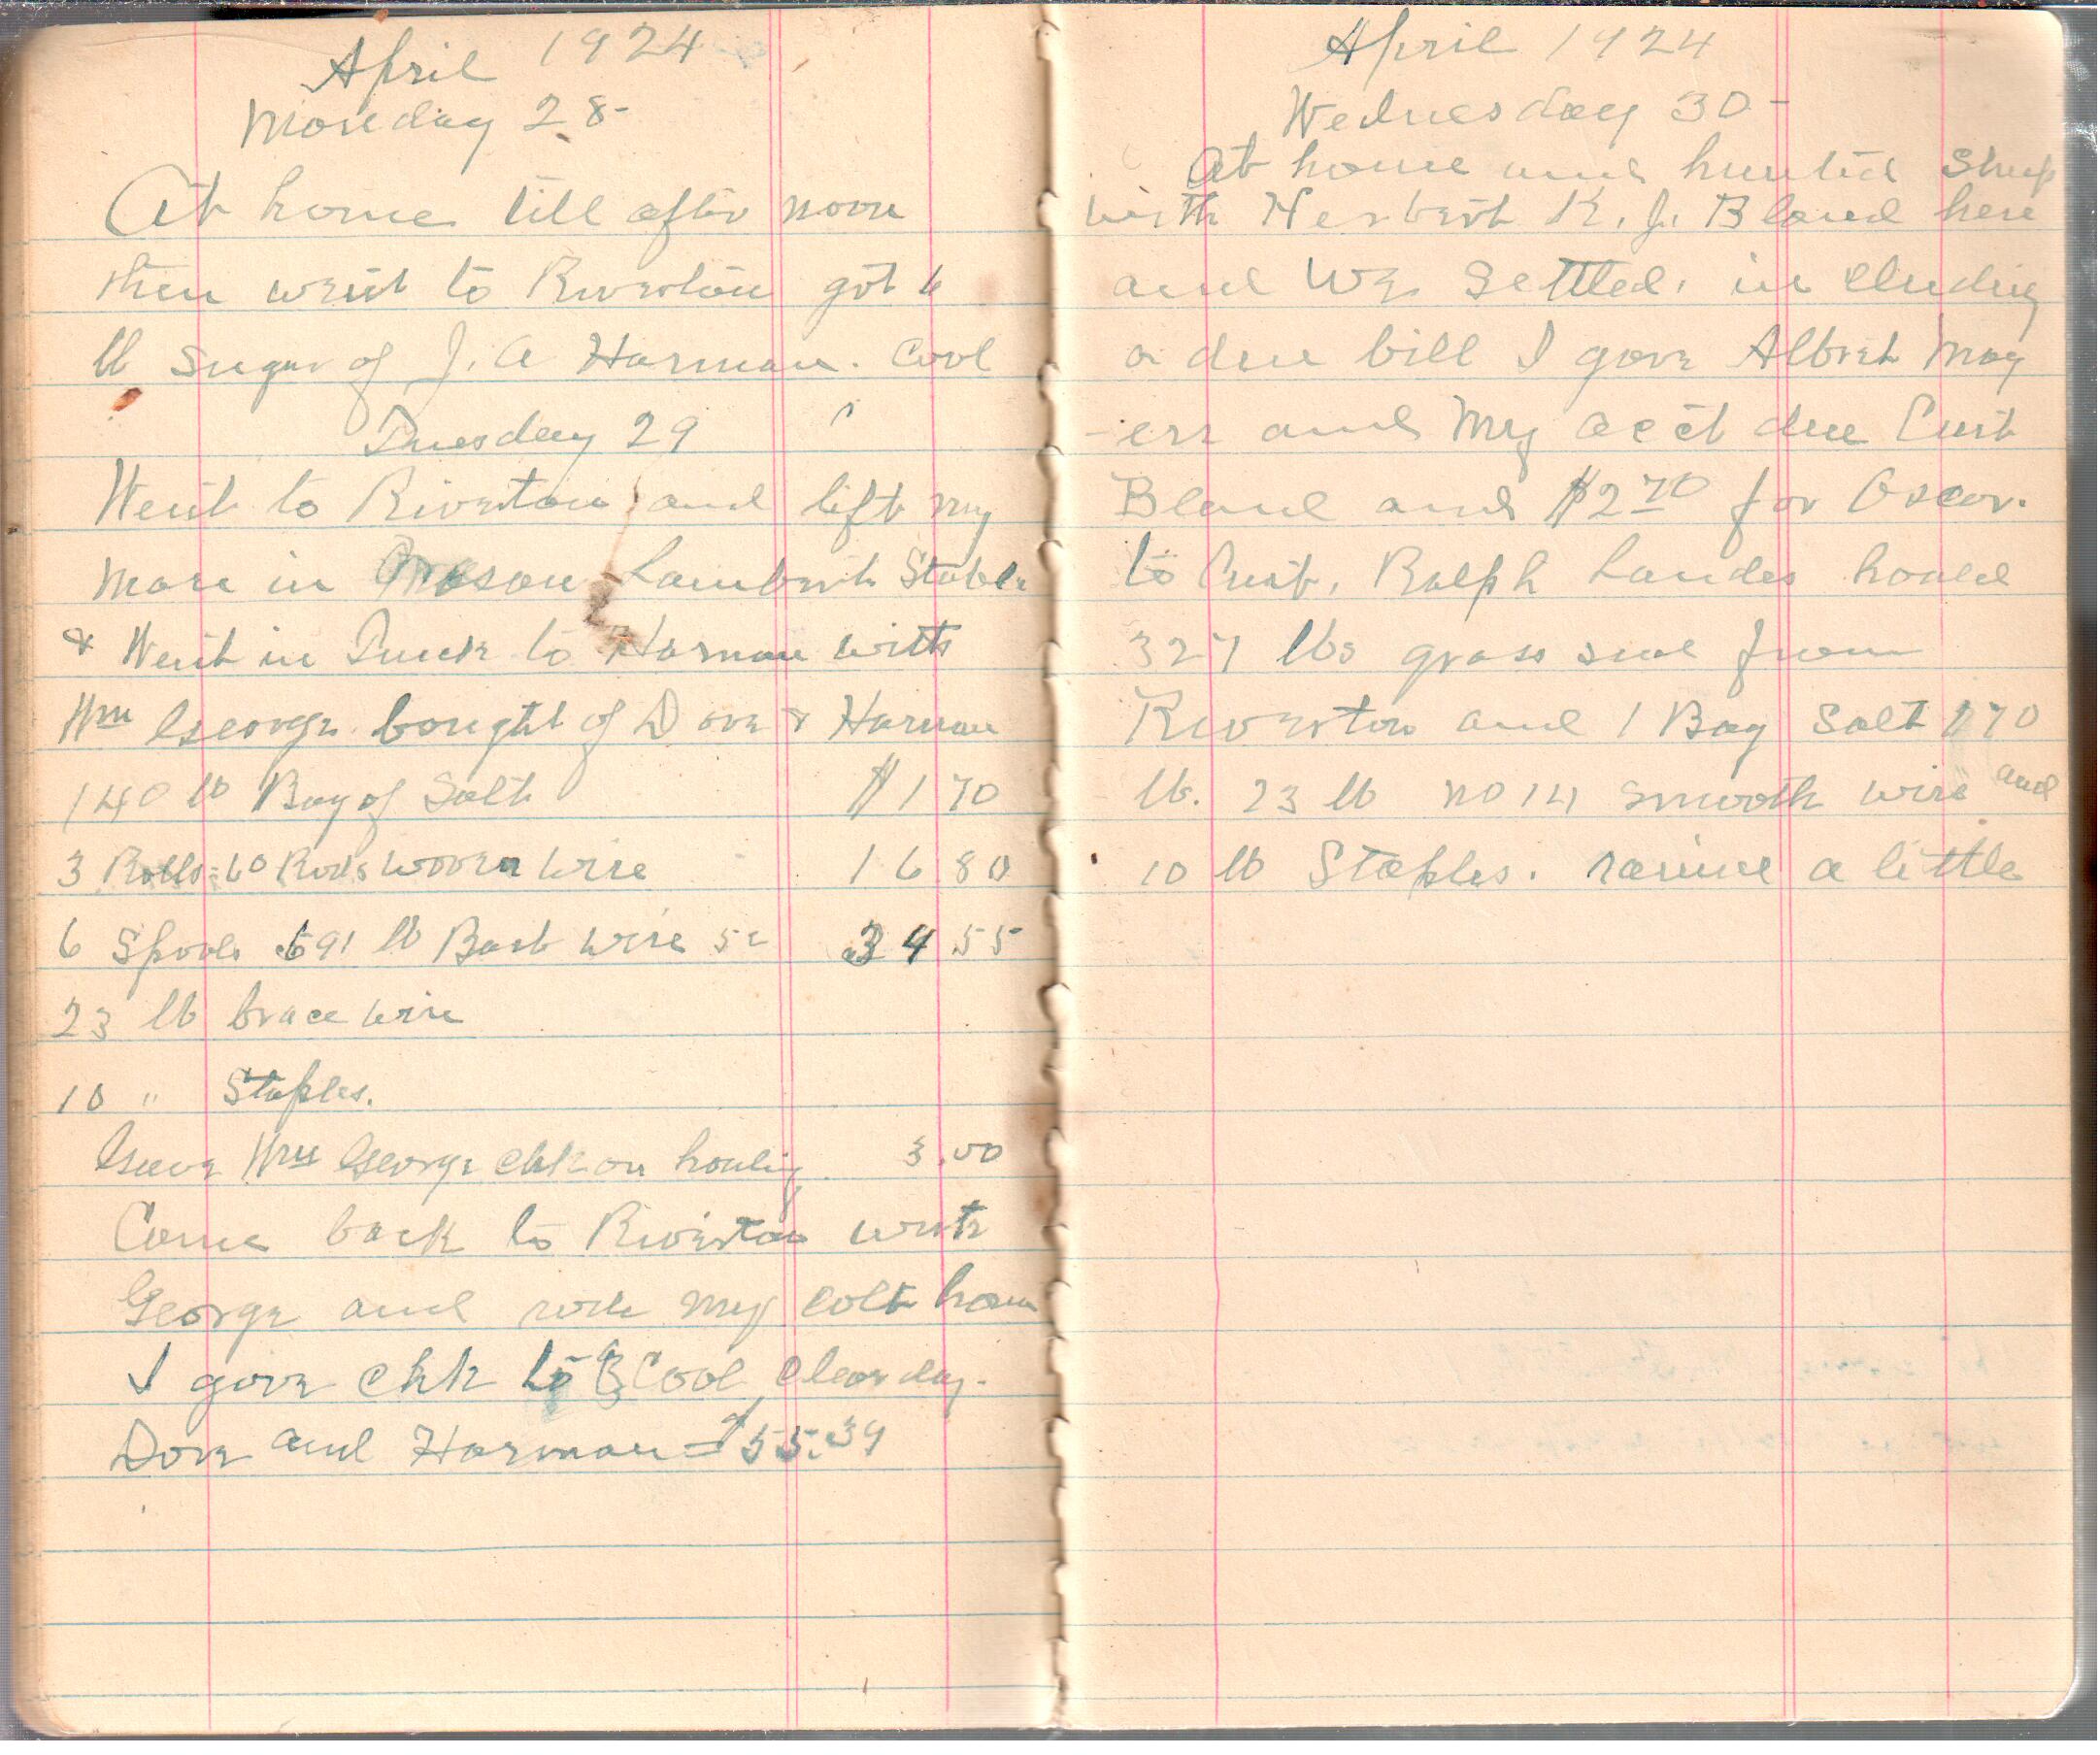 April 1924
Monday 28-
At home till after noon
then went to Riverton got 6
lb sugar of J. A Harman. Cool
Tuesday 29
Went to Riverton and left my
mare in Mason Lambert Stable
& Went in Truck to Harman with
Wm George. bought of Dove & Harman
140 lb Bag of Salt $1 70
3 Rolls = 60 Rods woven wire 16 80
6 Spools 691 lb Barb wire 5c 34 55
23 lb brace wire
10 " Staples.
Gave Wm George chk on hauling 3.00
Come back to Riverton with
George and rode my colt home
I gave chk to Cool Clear day.
Dove and Harman = $55.39
April 1924
Wednesday 30-
At home and hunted Sheep
with Herbert R. J. Bland here
and We Settled. in cluding
a due bill I gave Albert May
-ers and My acct due Curt
Bland and $2 70 for Oscar.
to Curt. Ralph Landes hauled
327 lbs grass seed from
Riverton and 1 Bag Salt 170
lb. 23 lb no 14 smooth wire and
10 lb Staples. rained a little